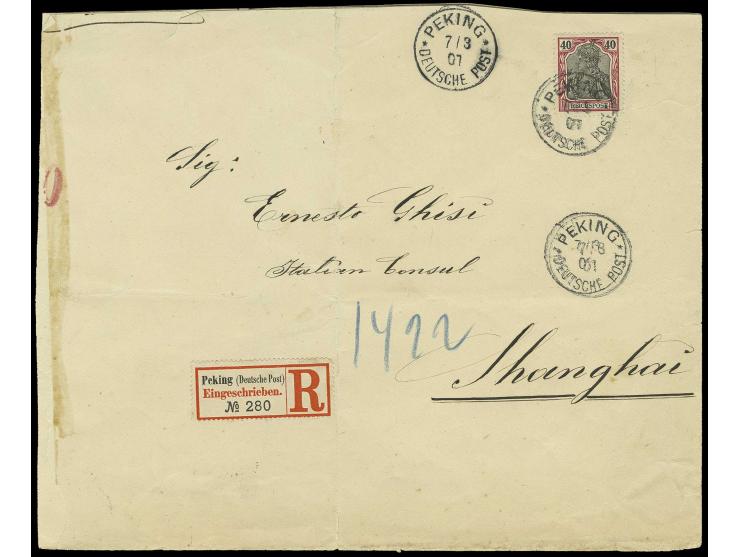 PEKING
7/3
01
DEUTSCHE POST
40 40
REICHSPOST
PEKING
01
DEUTSCHE POST
Sig:
Ernesto Ghisi
PEKING
7/3
01
DEUTSCHE POST
Italian Consul
1422
Shanghai
Peking (Deutsche Post)
Eingeschrieben.
№ 280
R